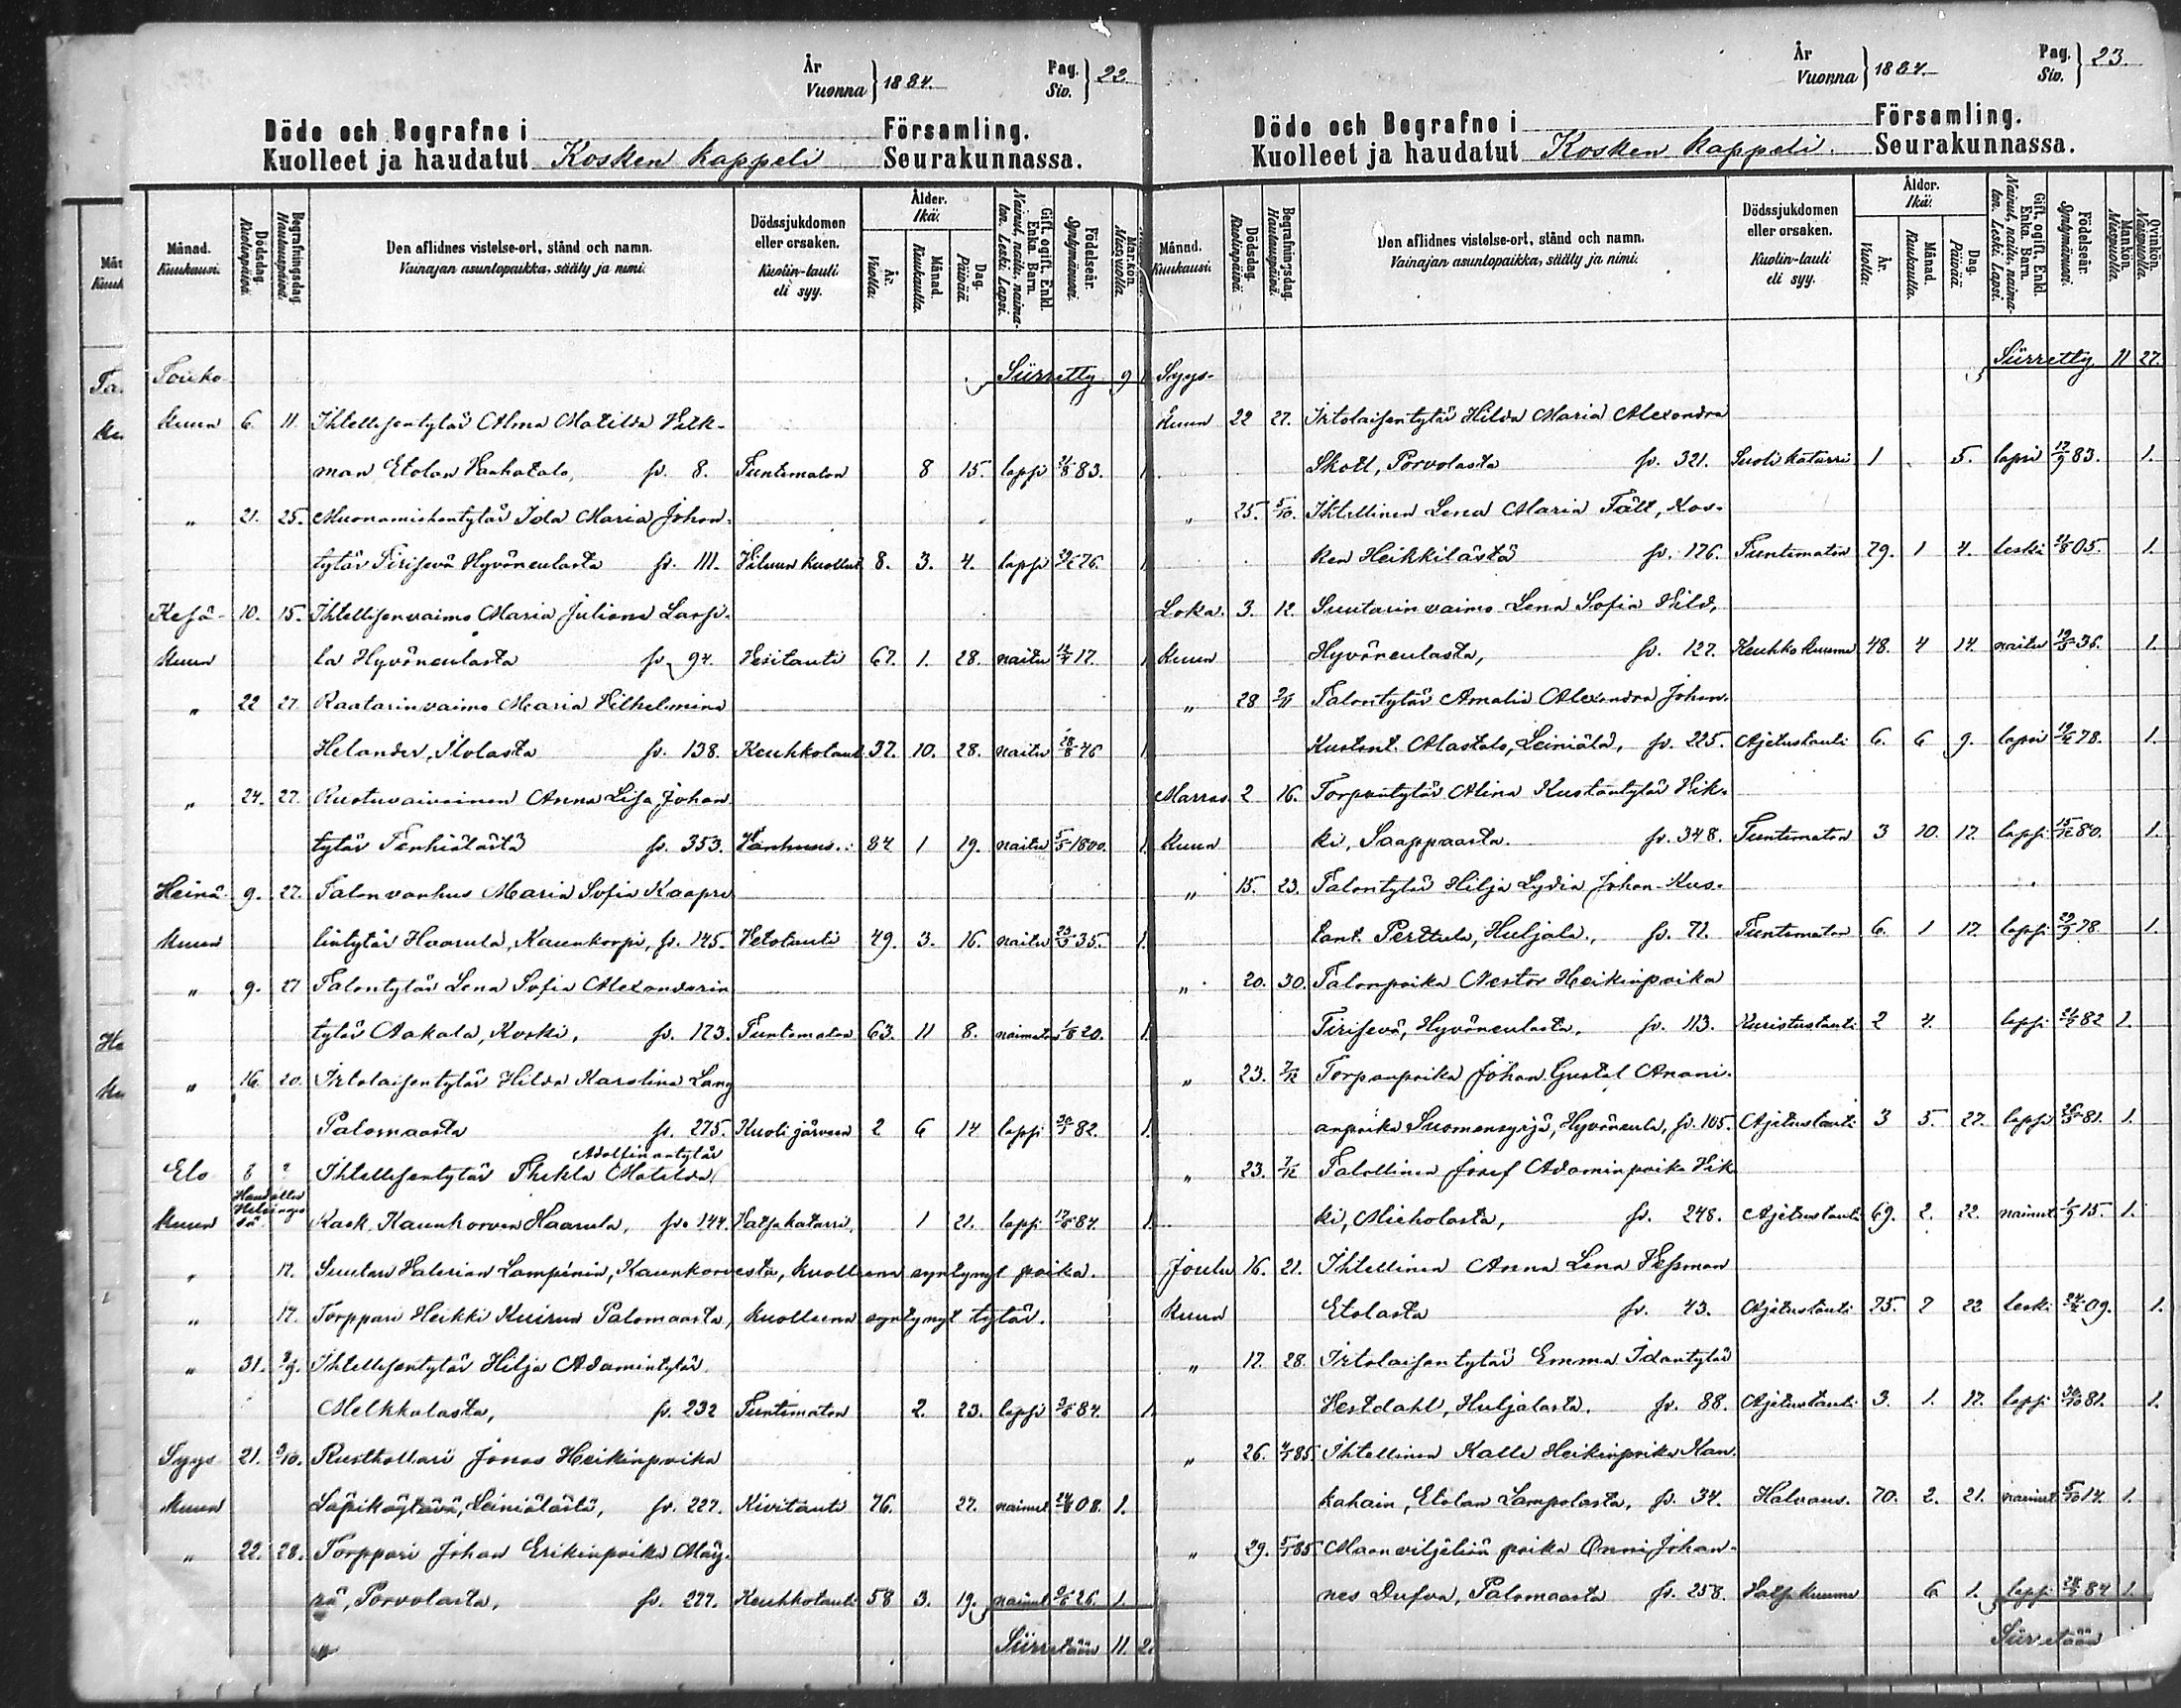 År
Vuonna } 1884.
Pag.
Siv. } 22.
Döde och Begrafne i Församling.
Kuolleet ja haudatut Kosken kappeli Seurakunnassa.
Månad. Kuukausi.
Dödsdag. Kuolinpäivä.
Begrafningsdag. Hautauspäivä.
Den aflidnes vistelse-ort, stånd och namn.
Vainajan asuntopaikka, sääty ja nimi.
Dödssjukdomen eller orsaken.
Kuolin-tauti eli syy.
Ålder. Ikä.
År. Vuotta.
Månad. Kuukautta.
Dag. Päivää.
Gift, ogift, Enkl. Enka, Barn.
Nainut, naitu, naimaton, Leski, Lapsi.
Födelseår. Syntymävuosi.
Touko- Siirretty 9
kuun 6. 11. Ihtellisentytär Alma Matilda Vilk-
man Etolan Vanhatalo, fv. 8. Tuntematon 8 15. lapsi 21/8 83. 1
" 21. 25. Muonamiehentytär Ida Maria Johan-
tytär Tirisevä Hyvöneulasta fv. 111. Viluun kuollut 8. 3. 4. lapsi 76. 1
Kesä- 10. 15. Ihtellisenvaimo Maria Juliana Larsi-
la Hyvöneulasta fv. 94. Vesitauti 67. 1. 28. naitu 12/4 17. 1
kuun
" 22 27. Raatarinvaimo Maria Vilhelmina
Helander, Ilolasta fv. 138. Keuhkotauti 37. 10. 28. naitu 46 1
" 24. 27. Ruotuvaivainen Anna Lisa Johan
tytär Tenhiälästä fv. 353. Vanhuus. 84 1 19. naitu 5/5 1800. 1.
Heinä- 9. 27. Talon vanhus Maria Sofia Kaapre
kuun lintytär Haarula, Kaunkorpi, fv. 145. Vetotauti 49. 3. 16. naitu 23/3 35. 1.
" 9. 27 Talontytär Lena Sofia Alexanderin
tytär Aakala, Koski, fv. 173. Tuntematon 63. 11 8. naimaton 1/8 20. 1.
" 16. 20. Irtolaisentytär Hilda Karolina Lang
Palomaasta fv. 275. Kuoli järveen 2 6 14 lapsi 82. 1.
Adolfinantytär
Elo 8 ? Ihtellisentytär Thekla Matilda
Haudattu Helsingissä
kuun Rask, Kaunkorven Haarula, fv. 144. Vatsakatarri, 1 21. lapsi 17/6 84. 1.
" 17. Suutari Valerian Lampénin, Kaunkorvesta, kuolleena syntynyt poika.
" 17. Torppari Heikki Kuirun Palomaasta, kuolleena syntynyt tytär.
" 31. 7/9. Ihtellisentytär Hilja Adamintytär
Melkkalasta, fv. 232 Tuntematon 2. 23. lapsi 84. 1
Syys 21. 5/10. Rusthollari Jonas Heikinpoika
kuun Läpiköytävä, Leiniälästä, fv. 227. Kivitauti 76. 27. nainut 24/8 08. 1.
" 22. 28. Torppari Johan Erikinpoika Mäy-
rä, Porvolasta, fv. 277. Keuhkotauti 58 3. 19. nainut 26. 1.
Siirretään 11. 2
År
Vuonna } 1884.
Pag.
Siv. } 23.
Döde och Begrafne i Församling.
Kuolleet ja haudatut Kosken kappeli. Seurakunnassa.
Månad. Kuukausi.
Dödsdag. Kuolinpäivä.
Begrafningsdag. Hautauspäivä.
Den aflidnes vistelse-ort, stånd och namn.
Vainajan asuntopaikka, sääty ja nimi.
Dödssjukdomen eller orsaken.
Kuolin-tauti eli syy.
Ålder. Ikä.
År. Vuotta.
Månad. Kuukautta.
Dag. Päivää.
Gift, ogift, Enkl. Enka, Barn.
Nainut, naitu, naimaton, Leski, Lapsi.
Födelseår. Syntymävuosi.
Mankön. Miespuolia.
Qvinkön. Naispuolia.
Syys- Siirretty 11 27.
kuun 22 27. Irtolaisentytär Hilda Maria Alexandra
Skott, Porvolasta fv. 321. Suoli katarri 1 5. lapsi 17/9 83. 1.
" 25. 5/10. Ihtellinen Lena Maria Fält, Kos-
ken Heikkilästä fv. 176. Tuntematon 79. 1 4. leski 21/8 05. 1.
Loka- 3. 12. Suutarin vaimo Lena Sofia Vild,
kuun Hyvöneulasta, fv. 127. Keuhko kuume 48. 4 14. naitu 19/5 36. 1.
" 28 2/11 Talontytär Amalia Alexandra Johan-
Kustant. Alastalo, Leiniälä, fv. 225. Ajetustauti 6. 6 9. lapsi 19/4 78. 1.
Marras 2 16. Torpantytär Alina Kustaantytär Vik-
kuun ki, Saappaasta. fv. 348. Tuntematon 3 10. 17. lapsi 15/12 80. 1.
" 15. 23. Talontytär Hilja Lydia Johan-Kus-
tant. Perttula, Huljala, fv. 71. Tuntematon 6. 1 17. lapsi 29/9 78. 1.
" 20. 30. Talonpoika Nestor Heikinpoika
Tirisevä, Hyvöneulasta, fv. 113. Kuristustauti 2 4. lapsi 82 1.
" 23. 7/12 Torpanpoika Johan Gustaf Anani-
anpoika Suomensyrjä, Hyvöneula, fv. 105. Ajetustauti 3 5. 27. lapsi 26/5 81. 1.
" 23. 7/12 Talollinen Josef Adaminpoika Vik
ki, Mieholasta, fv. 248. Ajetustauti 69. 2. 22. nainut 1/9 15. 1.
Joulu 16. 21. Ihtellinen Anna Lena Vessman
kuun Etolasta fv. 43. Ajetustauti 75. 7 22 leski 24/4 09. 1.
" 17. 28. Irtolaisen tytär Emma Idantytär
Vestdahl, Huljalasta, fv. 88. Ajetustauti 3. 1. 17. lapsi 30/10 81. 1.
" 26. 4/1 85. Ihtellinen Kalle Heikinpoika Kan-
kahain, Etolan Lampolasta, fv. 34. Halvaus. 70. 2. 21. nainut 5/10 14. 1.
" 29. 5/1 85. Maanviljeliän poika Onni Johan-
nes Dufva, Palomaasta fv. 258. Vatsa kuume 6 1. lapsi 28/6 84 1.
Siirretään